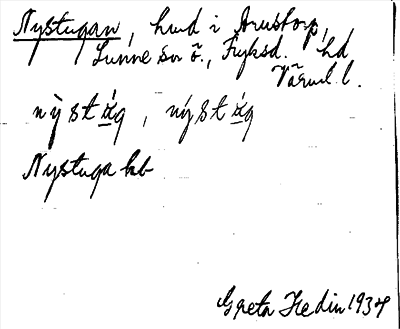 Nystugan, hmd i Arnstorp,
Sunne sn ö., Fryksd. hd
Värml. l.
ny̌ st á̤g, nýst á̤g
Nystuga kb
Greta Hedin 1934